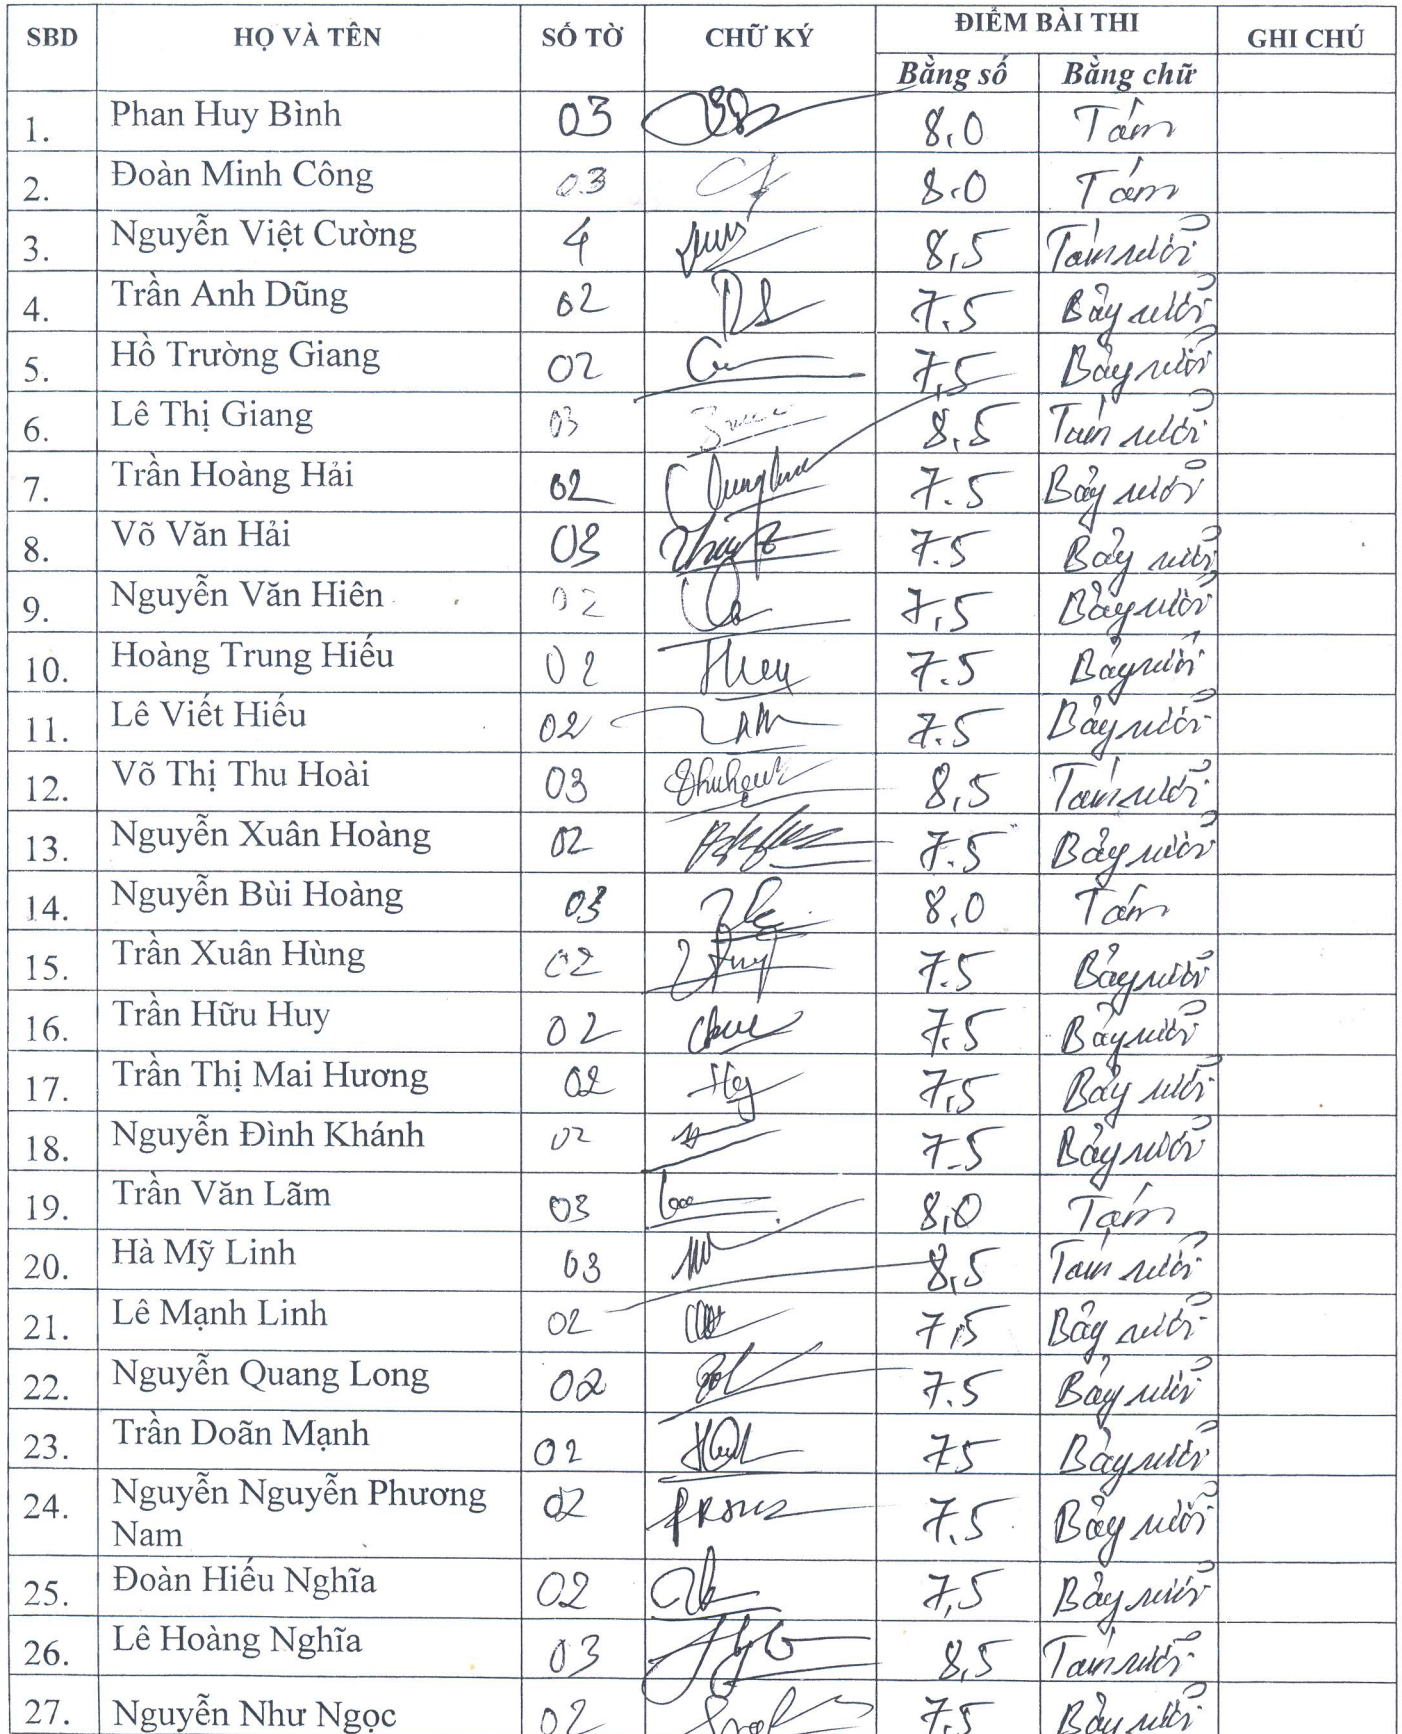 SBD HỌ VÀ TÊN SỐ TỜ CHỮ KÝ ĐIỂM BÀI THI GHI CHÚ
Bằng số Bằng chữ
1. Phan Huy Bình 03 8,0 Tám
2. Đoàn Minh Công 03 8.0 Tám
3. Nguyễn Việt Cường 4 8,5 Tám rưỡi
4. Trần Anh Dũng 02 7.5 Bảy rưỡi
5. Hồ Trường Giang 02 7,5 Bảy rưỡi
6. Lê Thị Giang 03 8,5 Tám rưỡi
7. Trần Hoàng Hải 02 7.5 Bảy rưỡi
8. Võ Văn Hải 03 7.5 Bảy rưỡi
9. Nguyễn Văn Hiên 02 7,5 Bảy rưỡi
10. Hoàng Trung Hiếu 02 7.5 Bảy rưỡi
11. Lê Viết Hiếu 02 7.5 Bảy rưỡi
12. Võ Thị Thu Hoài 03 8,5 Tám rưỡi
13. Nguyễn Xuân Hoàng 02 7.5 Bảy rưỡi
14. Nguyễn Bùi Hoàng 03 8,0 Tám
15. Trần Xuân Hùng 02 7.5 Bảy rưỡi
16. Trần Hữu Huy 02 7.5 Bảy rưỡi
17. Trần Thị Mai Hương 02 7,5 Bảy rưỡi
18. Nguyễn Đình Khánh 02 7.5 Bảy rưỡi
19. Trần Văn Lãm 03 8,0 Tám
20. Hà Mỹ Linh 03 8,5 Tám rưỡi
21. Lê Mạnh Linh 02 7,5 Bảy rưỡi
22. Nguyễn Quang Long 02 7.5 Bảy rưỡi
23. Trần Doãn Mạnh 02 7.5 Bảy rưỡi
24. Nguyễn Nguyễn Phương 02 7.5 Bảy rưỡi
Nam
25. Đoàn Hiếu Nghĩa 02 7,5 Bảy rưỡi
26. Lê Hoàng Nghĩa 03 8,5 Tám rưỡi
27. Nguyễn Như Ngọc 02 7.5 Bảy rưỡi